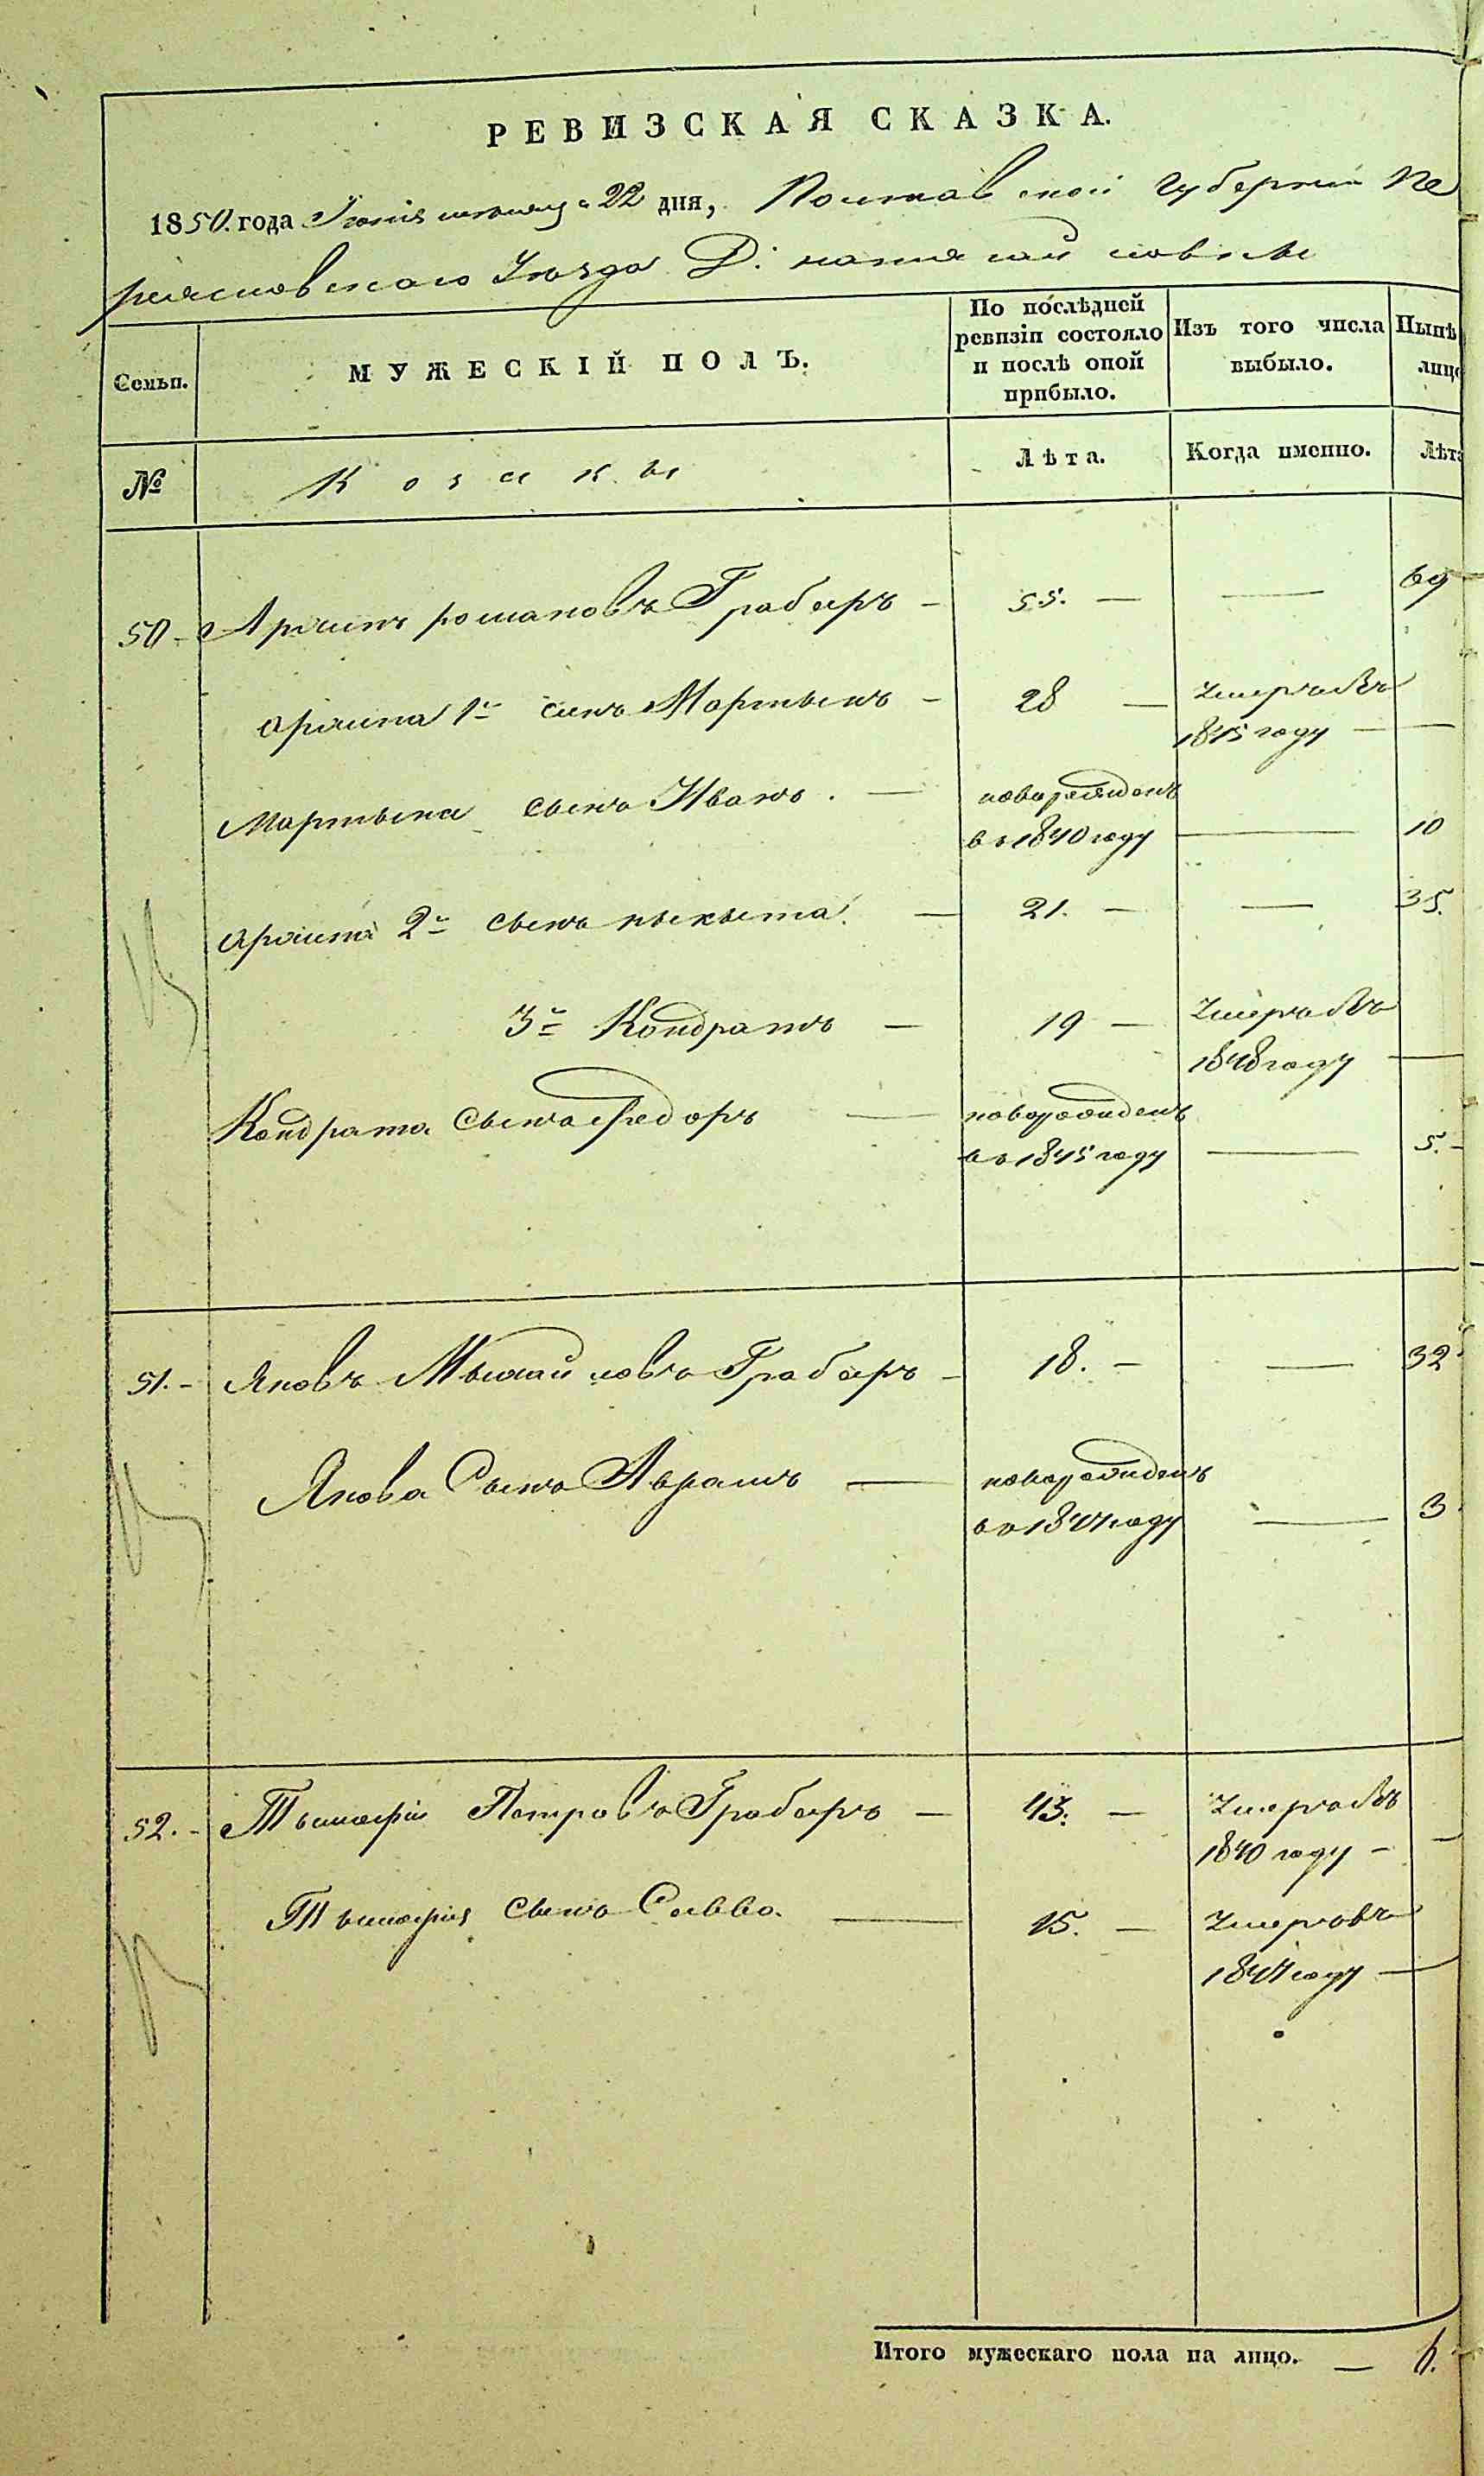 РЕВИЗСКАЯ СКАЗКА.
1850. года Іюня месяца 22 дня, Полтавской Губерніи Пе
реясловского Уезда Д:
Семьи.
МУЖЕСКІЙ ПОЛЪ.
По послѣдней ревизіи состояло и послѣ оной прибыло.
Изъ того числа выбыло.
Нынѣ лицо
№
Козакы
Лѣта.
Когда именно.
Лѣта
50 - романовъ Грабарь - 55. — — 69
1й синъ Мартынъ - 28 — Умеръ въ
1845 году — —
Мартына сынъ Иванъ. — новорожденъ
въ 1840 году — 10
2й сынъ Ныкыта. — 21. — — 35.
3й Кондратъ — 19 — Умеръ въ
1848 году —
Кондрата сынъ Федоръ — новорожденъ
въ 1845 году — 5. -
51. - Яковъ Мыхайловъ Грабарь - 18. — — 32
Якова Сынъ Аврамъ — новорожденъ
въ 1847 году — 3
52. - Тымофій Петровъ Грабарь — 43. — Умеръ въ
1840 году - —
Тымофія Сынъ Савва. — 15. — Умеръ въ
1844 году —
Итого мужескаго пола на лицо. — 6.